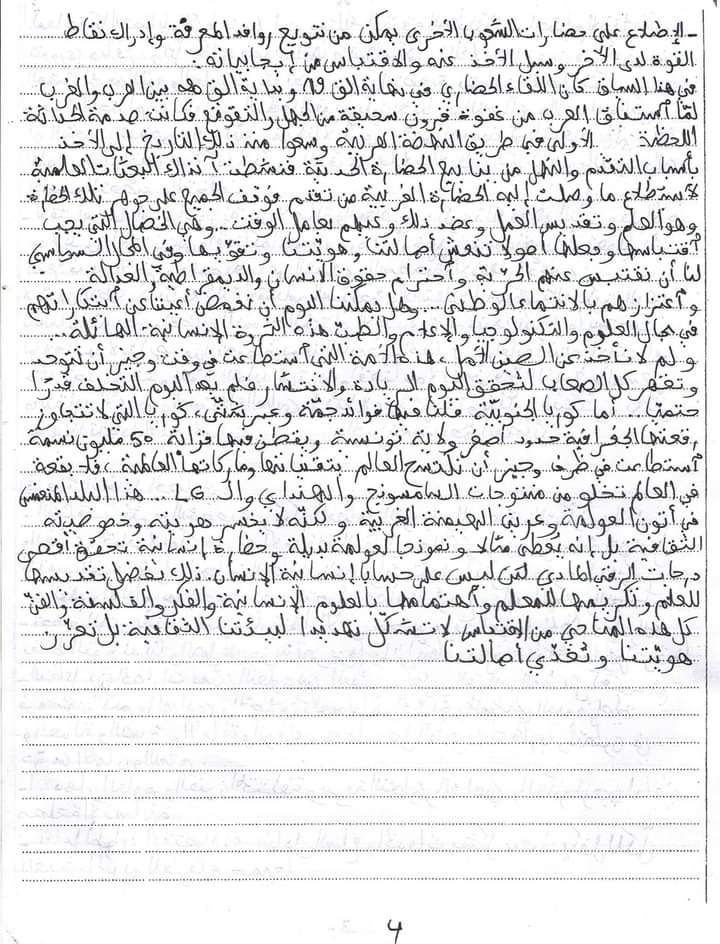 - الإطلاع على حضارات الشعوب الأخرى يمكن من تنويع روافد المعرفة وإدراك نقاط
القوة لدى الآخر وسبل الأخذ عنه والاقتباس من إيجابياته.
في هذا السياق كان اللقاء الحضاري في نهاية الق 19 وبداية الق 20 بين العرب والغرب
لمّا استفاق العرب من غفوة قرون سحيقة من الجهل والتقوقع فكانت صدمة الحداثة
اللحظة الأولى في طريق النهضة العربية وسعوا منذ ذلك التاريخ إلى الأخذ
بأسباب التقدم والنهل من ينابيع الحضارة الحديثة فنشطت آنذاك البعثات العلمية
لاستطلاع ما وصلت إليه الحضارة الغربية من تقدم فوقف الجميع على جوهر تلك الحضارة
وهو العلم وتقديس العمل وعضد ذلك وعيهم بعامل الوقت.. وهي الخصال التي يجب
اقتباسها وجعلها أصولا تنعش أصالتنا وهويّتنا وتقوّيها وفي المجال السياسي
لنا أن نقتبس عنهم الحريّة واحترام حقوق الإنسان والديمقراطية والعدالة
واعتزازهم بالانتماء الوطني... وهل يمكننا اليوم أن نغمض أعيننا عن ابتكاراتهم
في مجال العلوم والتكنولوجيا والإعلام والطب هذه الثروة الإنسانية الهائلة...
و لم لا نأخذ عن الصين الأمل، هذه الأمة التي استطاعت في وقت وجيز أن تتوحد
وتقهر كل الصعاب لتحقق اليوم الريادة والانتشار فلم يعد اليوم التخلف قدرًا
حتميّا... أما كوريا الجنوبيّة فلنا فيها فوائد جمّة وعبر شتّى، كوريا التي لا تتجاوز
رقعتها الجغرافية حدود أصغر ولاية تونسية ويقطن فيها قرابة 50 مليون نسمة
استطاعت في ظرف وجيز أن تكتسح العالم بتقنياتها وماركاتها العالمية، فلا بقعة
في العالم تخلو من منتوجات السامسونج والهنداي والـ LG.. هذا البلد المنغمس
في أتون العولمة وعرين الهيمنة الغربية ولكنّه لا يخسر هويته وخصوصيته
الثقافية بل إنه يُعطي مثالا ونموذجا لعولمة بديلة وحضارة إنسانية تحقق أقصى
درجات الرقي المادي لكن ليس على حساب إنسانية الإنسان. ذلك بفضل تقديسها
للعلم وتكريمها للمعلم واهتمامها بالعلوم الإنسانية والفكر والفلسفة والفنّ
كل هذه المناحي من الاقتباس لا تشكّل تهديدا لبيئتنا الثقافية بل تعزّز
هويّتنا وتغذّي أصالتنا
4